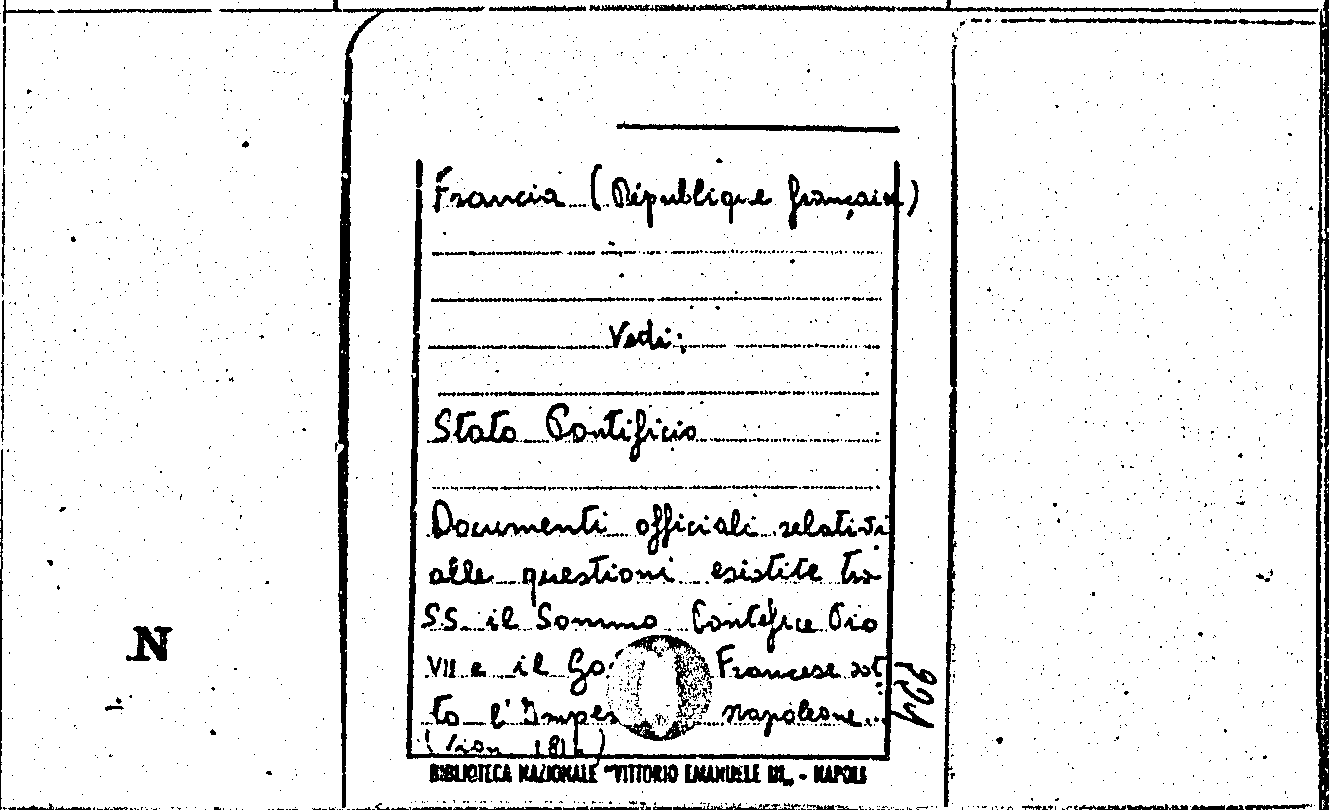 Francia (République française)
Vedi:
Stato Pontificio
Documenti officiali relativi
alle questioni esistite tra
SS. il Sommo Pontefice Pio
VII e il Go Francese sot
to l'Impe Napoleone...
BIBLIOTECA NAZIONALE "VITTORIO EMANUELE III„ - NAPOLI
N